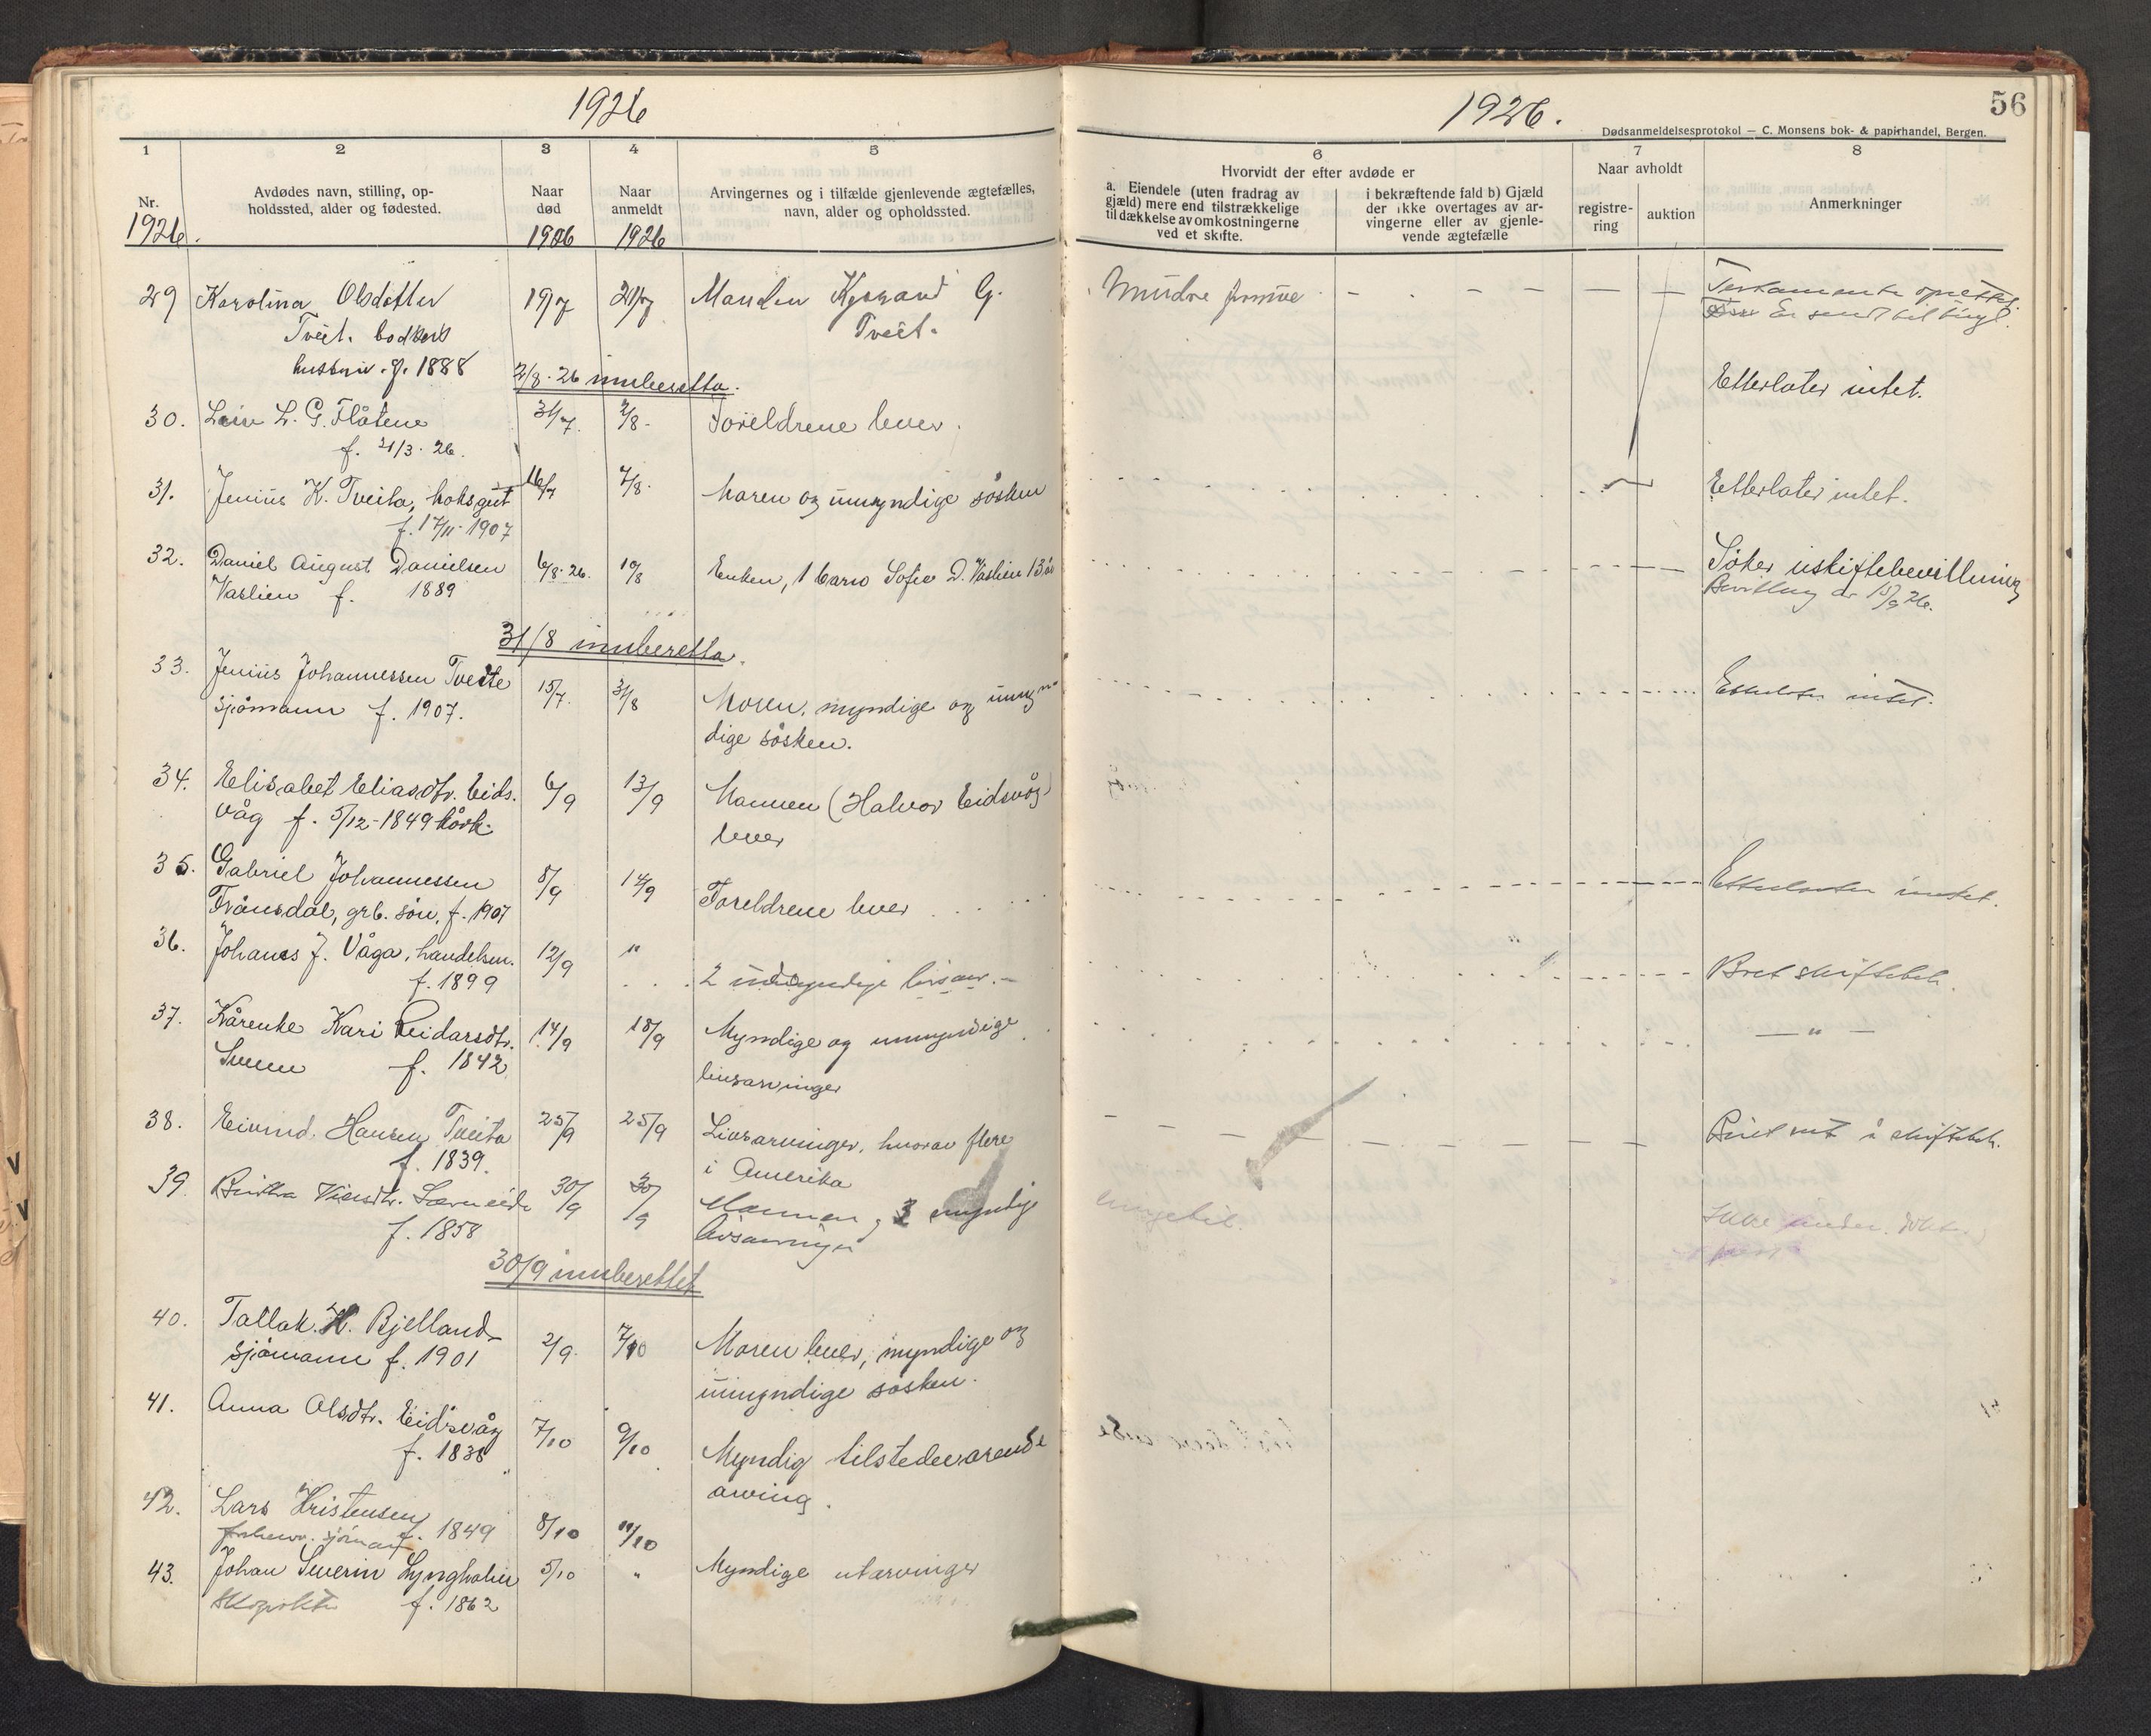 1926
1926.
56
Dødsanmeldelsesprotokol — C. Monsens bok- & papirhandel, Bergen.
1
2
3
4
5
6
7
8
Nr.
1926.
Avdødes navn, stilling, op-
holdssted, alder og fødested.
Naar
død
1926
Naar
anmeldt
1926
Arvingernes og i tilfælde gjenlevende ægtefælles,
navn, alder og opholdssted.
Hvorvidt der efter avdøde er
a. Eiendele (uten fradrag av
gjæld) mere end tilstrækkelige
til dækkelse av omkostningerne
ved et skifte.
i bekræftende fald b) Gjæld
der ikke overtages av ar-
vingerne eller av gjenle-
vende ægtefælle
Naar avholdt
registre-
ring
auktion
Anmerkninger
29 Karolina Olsdotter 19/7 21/7 Manden G.
Tveit. Tveit.
f. 1888
Mindre
Testamente
Er sendt til
2/8. 26 innberetta.
Etterlater intet.
30. L. G. Flåtene 31/7. 2/8. Foreldrene lever.
f. 21/3. 26.
31. Jenius K. Tveita, 16/7 7/8. Moren og umyndige søsken
f. 17/11-1907
Etterlater intet.
32. Daniel August Danielsen 6/8. 26. 10/8 Enken, 1 barn Sofie D. Vaslien 13 år
Vaslien f. 1889
Søker uskiftebevillning
Bevilling 26.
31/8 innberetta.
33. Jenius Johannessen Tveite 15/7. 31/8 Moren, myndige og umyn-
sjømann f. 1907. dige søsken.
Etterlater intet.
34. Elisabet Eliasdtr. Eids- 6/9 13/9 Mannen (Halvor Eidsvåg)
våg f. 5/12-1849 lever
35. Gabriel Johannessen 8/9 14/9 Foreldrene lever
Frånsdal, grb. søn, f. 1907
Etterlater intet.
36. Johanes J. Våga, handelsm. 12/9 "
f. 1899 2 umyndige livsarv.
37. Kari Reidarsdtr. 14/9 18/9 Myndige og umyndige
f. 1842 livsarvinger
— " —
38. Eivind Hansen Tveita 25/9 25/9 Livsarvinger, hvorav flere
f. 1839. i Amerika
39. 30/9 30/9 Mannen, 3 myndige
f. 1858 livsarvinger
30/9 innberettet
40. Tallak H. Bjelland 2/9. 7/10 Moren lever, myndige og
sjømann f. 1901 umyndige søsken.
41. Anna Olsdtr. Eidsvåg 7/10 9/10 Myndig tilstedeværende
f. 1838 arving.
42. Lars Kristensen 8/10 11/10
f. 1849
43. Johan Severin Lyngholm 5/10 " Myndige utarvinger
f. 1862